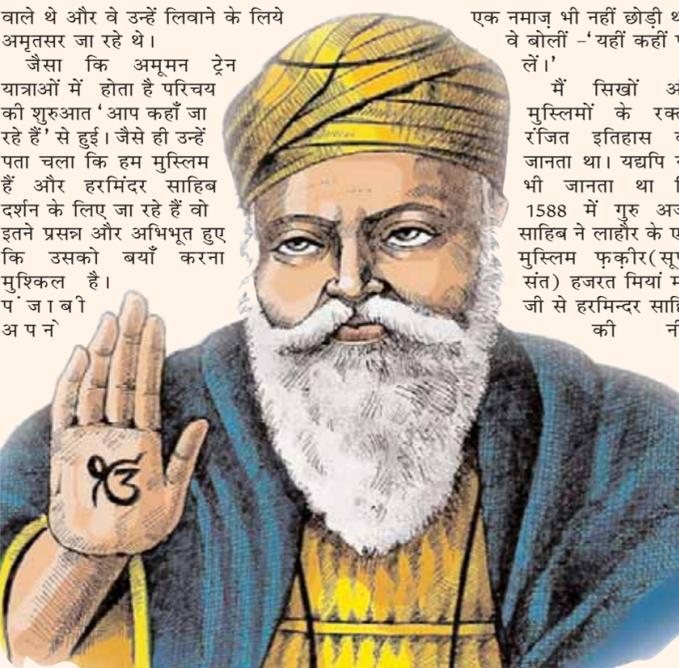 वाले थे और वे उन्हें लिवाने के लिये
अमृतसर जा रहे थे।
जैसा कि अमूमन ट्रेन
यात्राओं में होता है परिचय
की शुरुआत ‘आप कहाँ जा
रहे हैं’ से हुई। जैसे ही उन्हें
पता चला कि हम मुस्लिम
हैं और हरमिंदर साहिब
दर्शन के लिए जा रहे हैं वो
इतने प्रसन्न और अभिभूत हुए
कि उसको बयाँ करना
मुश्किल है।
पंजाबी
अपने
ੴ
एक नमाज़ भी नहीं छोड़ी
वे बोलीं -‘यहीं कहीं
लें।’
मैं सिखों
मुस्लिमों के
रंजित इतिहास
जानता था। यद्यपि
भी जानता था
1588 में गुरु
साहिब ने लाहौर के
मुस्लिम फ़क़ीर(
संत) हजरत मियां
जी से हरमिन्दर
की